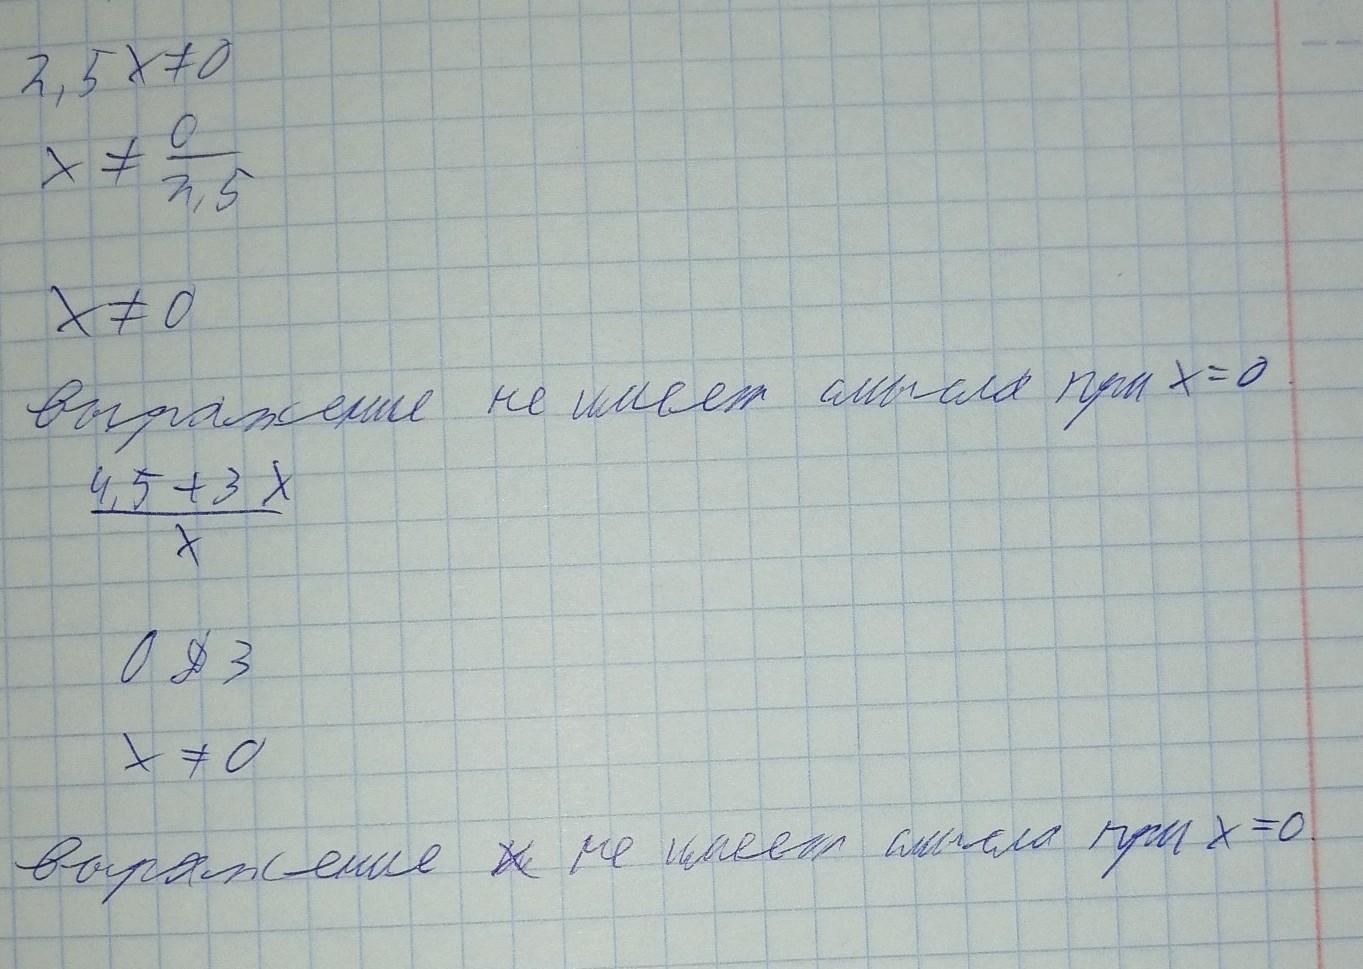 2,5x≠0
x ≠ 0/2,5
x≠0
выражение не имеет смысла при x=0
4,5+3x
x
ОДЗ
x≠0
выражение не имеет смысла при x=0.